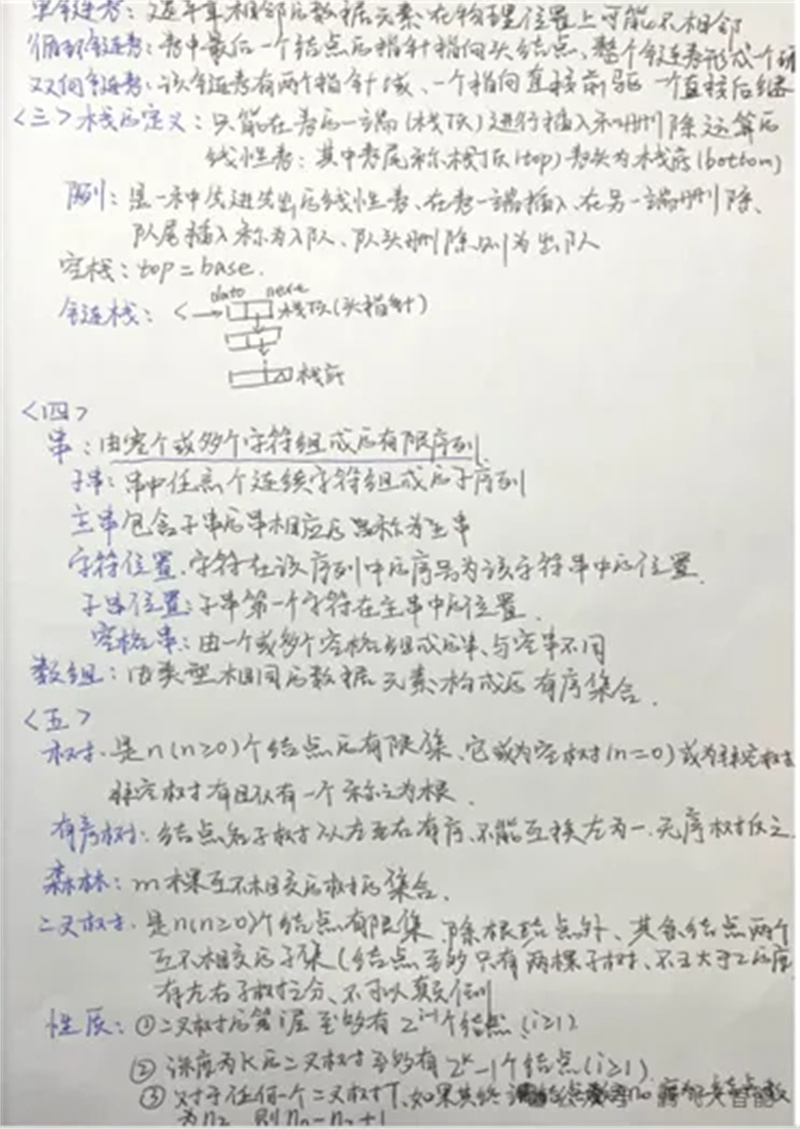 单链表:逻辑上相邻的数据元素在物理位置上可能不相邻
循环链表:表中最后一个结点的指针指向头结点、整个链表形成一个环
双向链表:该链表有两个指针域、一个指向直接前驱 一个直接后继
<三>栈的定义:只能在表的一端(栈顶)进行插入和删除运算的
线性表:其中表尾称栈顶(top)表头为栈底(bottom)
队列:是一种先进先出的线性表、在表一端插入、在另一端删除、
队尾插入称为入队、队头删除则为出队
空栈:top=base.
data next
链栈: 栈顶(头指针)
栈底
<四>
串:由零个或多个字符组成的有限序列.
子串:串中任意个连续字符组成的子序列
主串包含子串的串相应的 称为主串
字符位置.字符在该序列中的序号为该字符串中的位置.
子串位置:子串第一个字符在主串中的位置.
空格串:由一个或多个空格组成的串、与空串不同
数组:由类型相同的数据元素构成的有序集合.
<五>
树.是n(n≥0)个结点的有限集、它或为空树(n=0)或为非空树
非空树有且仅有一个称之为根.
有序树:结点各子树从左至右有序、不能互换左为一.无序树反之
森林:m棵互不相交的树的集合.
二叉树.是n(n≥0)个结点有限集、除根结点外、其余结点两个
互不相交的子集(结点至多只有两棵子树、不 大于2的度
有左右子树之分、不可以颠倒
性质:①二叉树的第i层至多有2ⁱ⁻¹个结点(i≥1)
② 深度为K的二叉树至多有2ᵏ-1个结点(i≥1)
③ 对于任何一个二叉树T、如果其终 结点数 n₀
为n₂ 则n₀=n₂+1